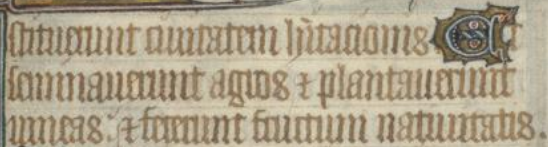 stituerunt ciuitatem hitacionis Et
seminauerunt agros ⁊ plantauerunt
uineas. ⁊ fecerunt fructum natiuitatis.